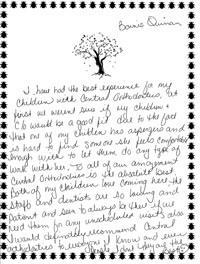 Bonnie Quinan
I have had the best experience for my
children with Central Orthodontics, at
first we weren't sure if my children &
I would be a good fit due to the fact
that one of my children has aspergers and
is hard to find someone she feels comfortable
enough with to let them do any type of
work with her. To all of our amazement
Central Orthodontics is the absolute best
both of my children love coming here the
staff and dentists are so loving and
patient and seem to always be there if we
need them for any unscheduled visits also
I would definitely recommend Central
Orthodontics to everyone I know and even
people I don't they are the